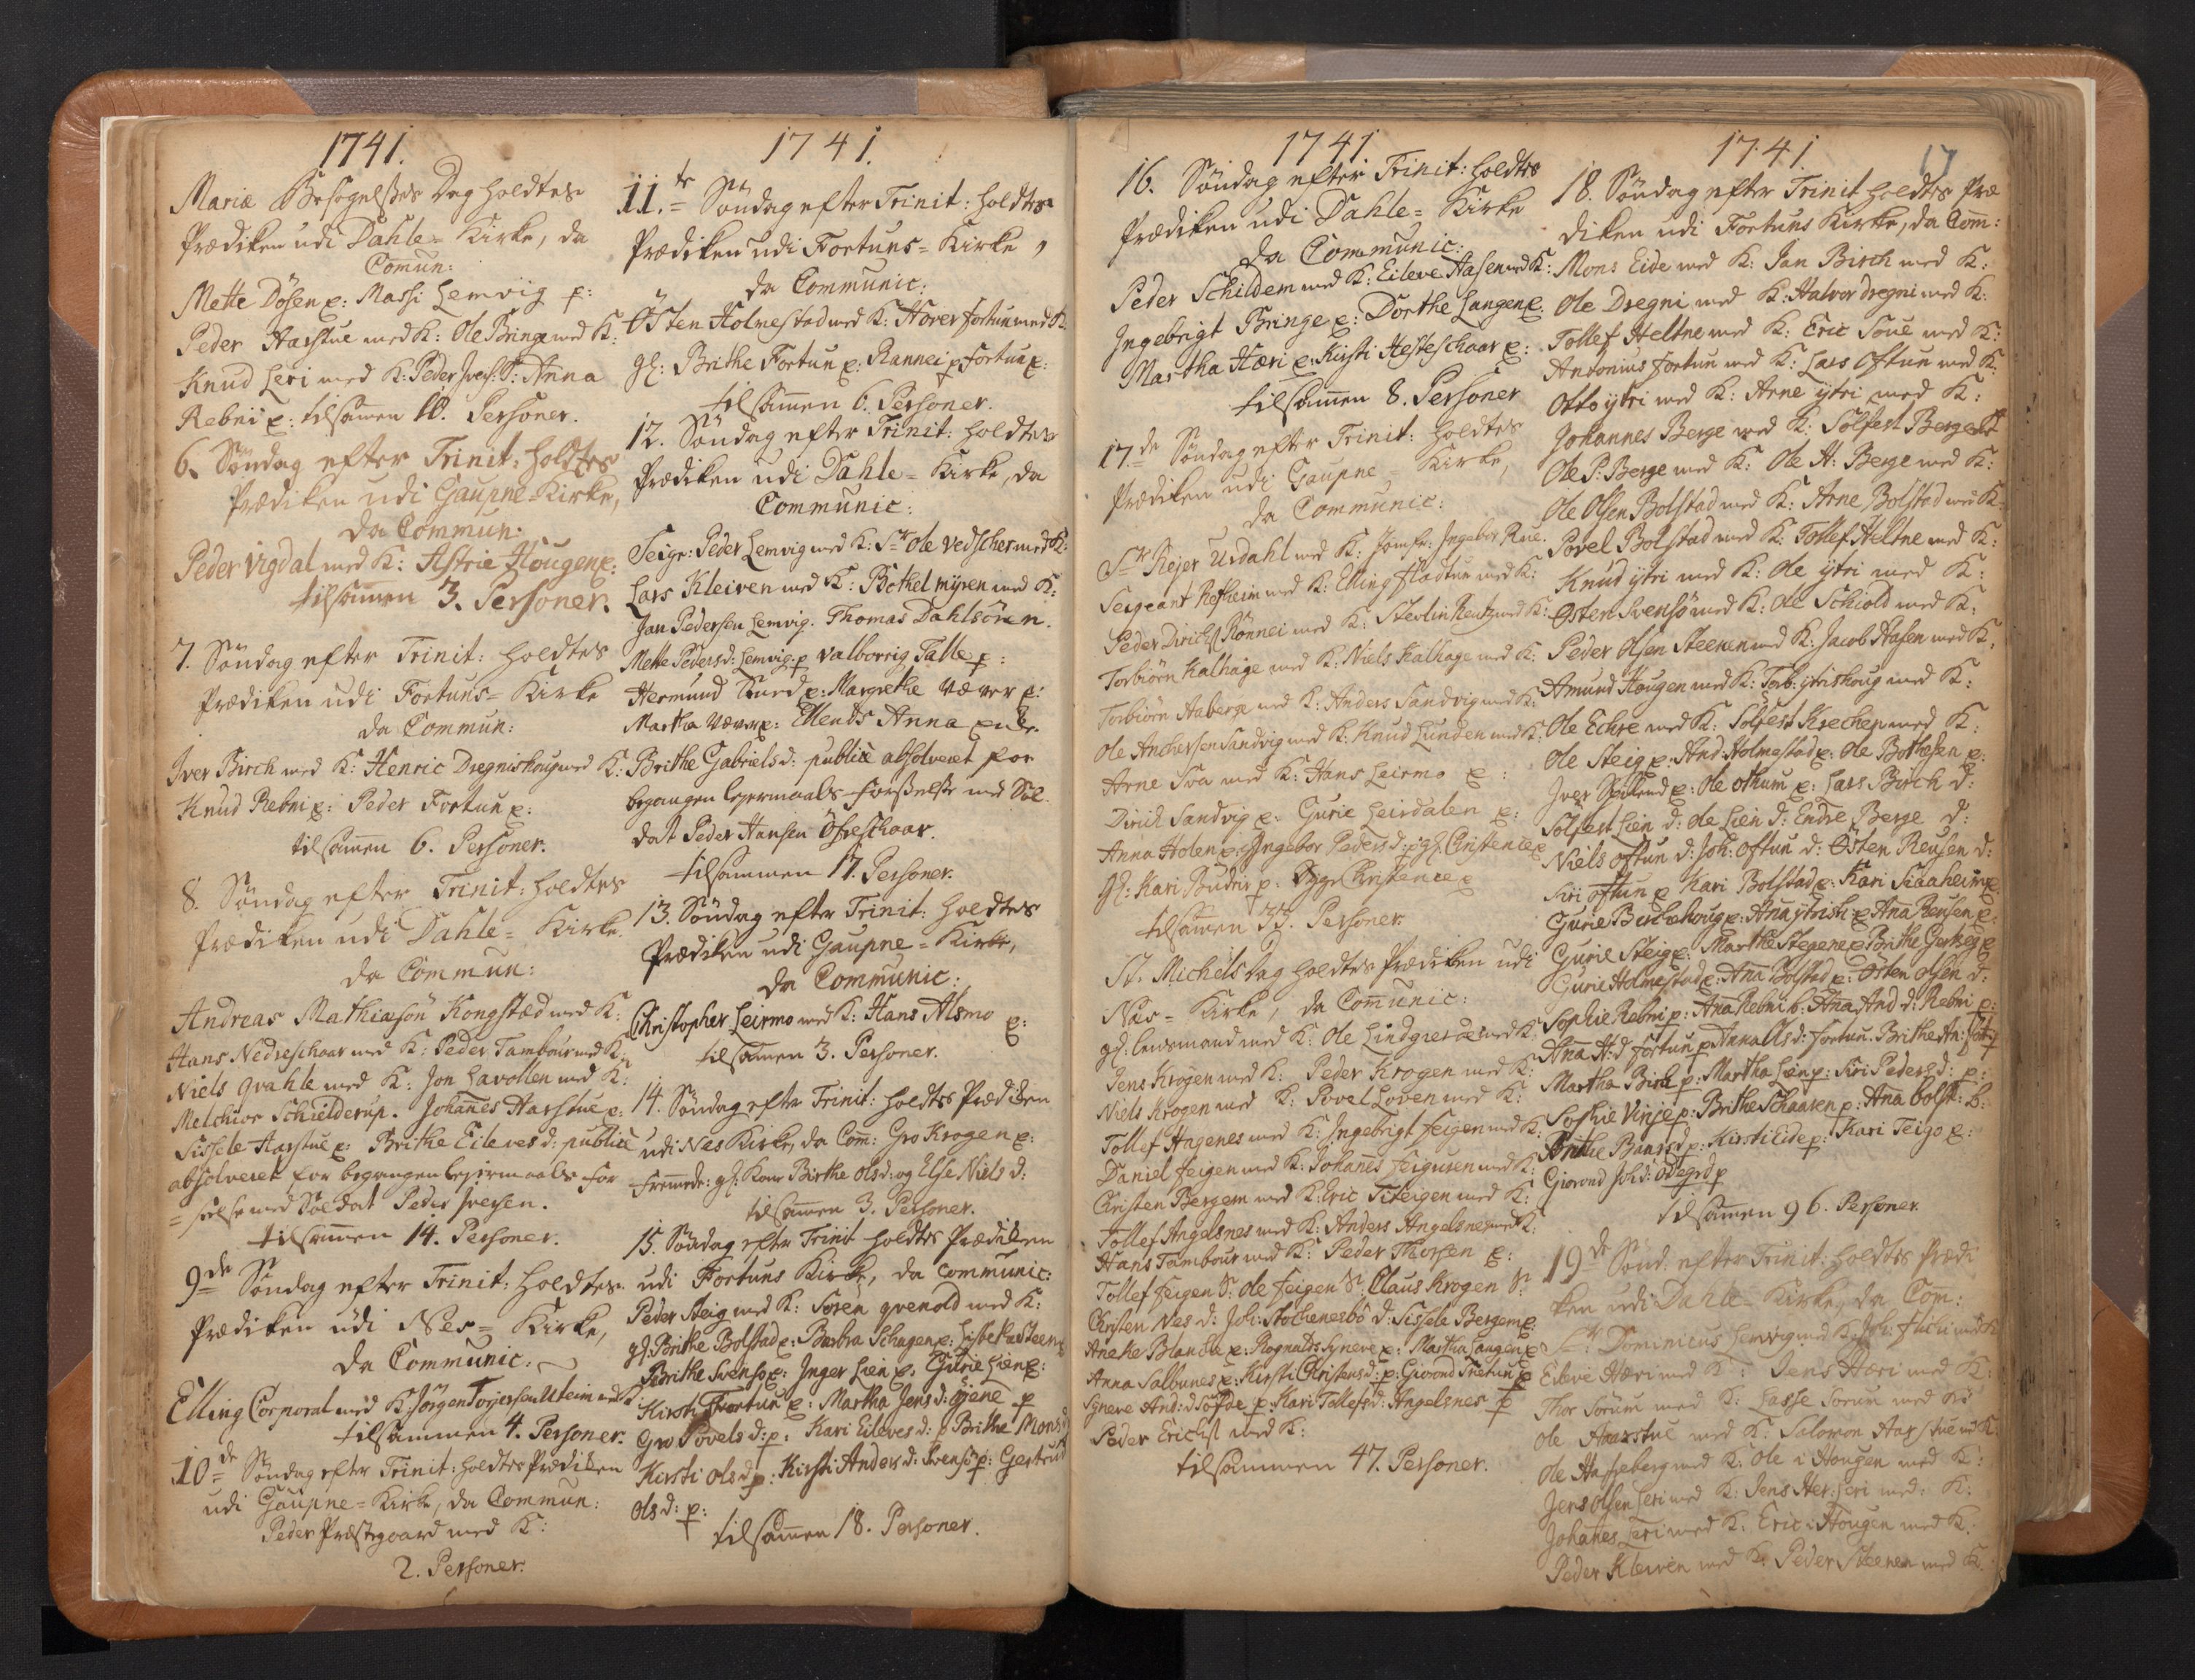 1741.
Mariæ Besøgelses Dag holdtes
Prædiken udi Dahle= Kirke, da
Comun:
Mette Døsen e: Massi Lemvig p:
Peder Harstue med K: Ole Bringe med K:
Knud Leri med K: Peder Ivers: S: Anna
Rebni e: tilsamen 10. Personer.
6. Søndag efter Trinit: holdtes
Prædiken udi Gaupne-Kirke,
da Commun:
Peder Vigdal med K: Astrie Hougen e:
tilsamen 3. Personer.
7. Søndag efter Trinit: holdtes
Prædiken udi Fortuns= Kirke
da Commun:
Iver Birch med K: Henric Dregnishoug med K:
Knud Rebni e: Peder Fortun e:
tilsamen 6. Personer.
8. Søndag efter Trinit: holdtes
Prædiken udi Dahle= Kirke.
da Commun:
Andreas Mathiasøn Kongstæd med K:
Hans Nedreschaar med K: Peder Tambour med K:
Niels Qvahle med K: Jon Havollen med K:
Melchior Schielderup. Johanes Harstue e:
Sissele Harstue e: Brithe Eilevesd: publicè
absolveret for begangen leiermaals for
=seelse med Soldat Peder Iversen.
tilsamen 14. Personer.
9de Søndag efter Trinit: holdtes
Prædiken udi Nes= Kirke,
da Communic:
Elling Corporal med K: Jørgen med K:
tilsammen 4. Personer.
10de Søndag efter Trinit: holdtes Prædiken
udi Gaupne=Kirke, da Commun:
Peder Præstegaard med K:
2. Personer.
1741.
11.te Søndag efter Trinit: holdtes
Prædiken udi Fortuns= Kirke,
da Communic:
Østen Holmestad med K: Haver Fortun med K:
gl: Brithe Fortun e: Rannei Fortun e:
tilsamen 6. Personer.
12. Søndag efter Trinit: holdtes
Prædiken udi Dahle= Kirke, da
Communic:
Seigr: Peder Lemvig med K: Sr Ole Vedscher med K:
Lars Kleiven med K: Botkel myren med K:
Jan Pedersen Lemvig. Thomas Dahlsøren.
Mette Pedersd: Lemvig p Valborrig Talle p:
Hermund e: Margrethe Værer e:
Martha Værer e: Ellends Anna
Brithe Gabrielsd: publicè absolveret for
begangen leiermaals forseelse med Sol-
dat Peder Hansen Øfreschaar.
tilsammen 17. Personer.
13. Søndag efter Trinit: holdtes
Prædiken udi Gaupne= Kirke,
da Communic:
Christopher Leirmo med K: Hans Alsmo e:
tilsamen 3. Personer.
14. Søndag efter Trinit: holdtes Prædiken
udi Nes Kirke, da Com: Gro Krogen e:
fremede: gl: Kone Birthe Olsd: og Else Nielsd:
tilsamen 3. Personer.
15. Søndag efter Trinit holdtes Prædiken
udi Fortuns Kirke, da communic:
Peder Steig med K: Søren Qvenold med K:
gl: Brithe Bolstad e: Barbra Schagen e: Lisbetha Steen e
Brithe Svensø e: Inger Lien e: Gurie Lien e:
Kirsti Fortun e: Martha Jensd: p
Gro Povelsd: p: Kari Eilevesd: p Brithe Monsd
Kirsti Olsd p: Kirsti Andersd: Svensø p: Gertrud
Olsd: p:
tilsamen 18. Personer.
1741
16. Søndag efter Trinit: holdtes
Prædiken udi Dahle= Kirke
da Communic:
Peder Schildem med K: Eileve Aasen med K:
Ingebrigt Bringe e: Dorthe Langen e:
Martha Hæri e: Kirsti Hesteschaar e:
tilsamen 8. Personer
17.de Søndag efter Trinit: holdtes
Prædiken udi Gaupne= Kirke,
da Communic:
Sr Rejer Urdahl med K: Jomfr: Ingebor Rue.
Sergeant Refheim med K: Elling Fladtun med K:
Peder Dirichs Rønnei med K: med K:
Torbiørn Kalhage med K: Niels Kalhage med K:
Torbiørn Aaberge med K: Anders Sandvig med K:
Ole Andersen Sandvig med K: Knud Lunden med K:
Arne Sva med K: Hans Leirmo e:
Dirich Sandvig e: Gurie Leirdalen e:
Anna Holen e: Ingebor Pedersd: gl: Christence e
gl: Kari Budrir p: Christence e
tilsamen 33. Personer.
St. Michels dag holdtes Prædiken udi
Nes= Kirke, da Comunic:
gl: lensmand med K: Ole Lindgreen med K:
Jens Krogen med K: Peder Krogen med K:
Niels Krogen med K: Povel Loven med K:
Tollef Hagenes med K: Ingebrigt Feigen med K:
Daniel Feigen med K: Johanes Feigusen med K:
Christen Bergem med K: Eric Feigen med K:
Tollef Angelsnes med K: Anders Angelsnes med K:
Hans Tambour med K: Peder Thorsen e:
Tollef Feigen S: Ole Feigen S: Claus Krogen S:
Christen Nes d: Joh: Stochenesbø d: Sissele Bergem e:
Anehe Blancha e: Rognalds Syneve e: Martha Haugen e
Anna Salbunes e: Kirsti Christensd: p: Giorond p
Synneve And: d p: Kari Tollefsd: Angelsnes p
Peder Erichs med K:
tilsammen 47. Personer.
1741.
17
18. Søndag efter Trinit holdtes Præ
diken udi Fortuns Kirke, da Com:
Mons Eide med K: Jan Birch med K:
Ole Dregni med K: Halvor Dregni med K:
Tollef Heltne med K: Eric Soue med K:
Antonius Fortun med K: Lars Oftun med K:
Otto ytri med K: Arne ytri med K:
Johannes Berge med K: Solfest Berge med K
Ole P: Berge med K: Ole H: Berge med K:
Ole Olsen Bolstad med K: Arne Bolstad med K
Povel Bolstad med K: Tollef Heltne med K:
Knud ytri med K: Ole ytri med K:
Østen Svensø med K: Ole Schiold med K:
Peder Olsen Steenen med K: Jacob Hasen med K:
Amund Hougen med K: Torb: ytrishoug med K:
Ole Echre med K: Solfest Krechen med K:
Ole Steig e: And: Holmestad e: Ole Bothesen e:
Iver e: Ole Othum e: Lars Birch d:
Solfest Lien d: Ole Lien d: Endre Berge d:
Niels Oftun d: Joh: Oftun d: Østen Reusen d:
Siri Oftun e Kari Bolstad e: Kari Skaaheim e:
Gurie e: Ana e Ana Reusen e:
Gurie Steig e: Marthe Stegene e Brithe e
Gurie Holmestad e: Ana Bolstad e: Østen Olsen d:
Sophie Rebni p: Ana Rebni p: Ana And: d: Rebni p:
Ana H:d Fortun p Anna Olsd: Fortun. Brithe
Martha Birch p: Martha Lien p: Siri Pedersd: p:
Sophie Vinje p: Brithe Schaaren p: Ana Bolst: p:
p: Kirsti Eide p: Kari Teigo e:
Giorond Joh:d: Ødegrd p
tilsamen 96. Personer.
19de Sønd. efter Trinit: holdtes Prædi
ken udi Dahle= Kirke, da Com:
Sr: Dominicus Lemvig med K: Joh: med K
Eileve Hæri med K: Jens Hæri med K:
Thor Sørum med K: Lasse Sørum med K:
Ole Haarstue med K: Salomon Harstue med K:
Ole Hasseberg med K: Ole i Hougen med K:
Jens Olsen Leri med K: Jens Iver: Leri med K:
Johanes Leri med K: Eric i Hougen med K:
Peder Kleiven med K: Peder Steenen med K: